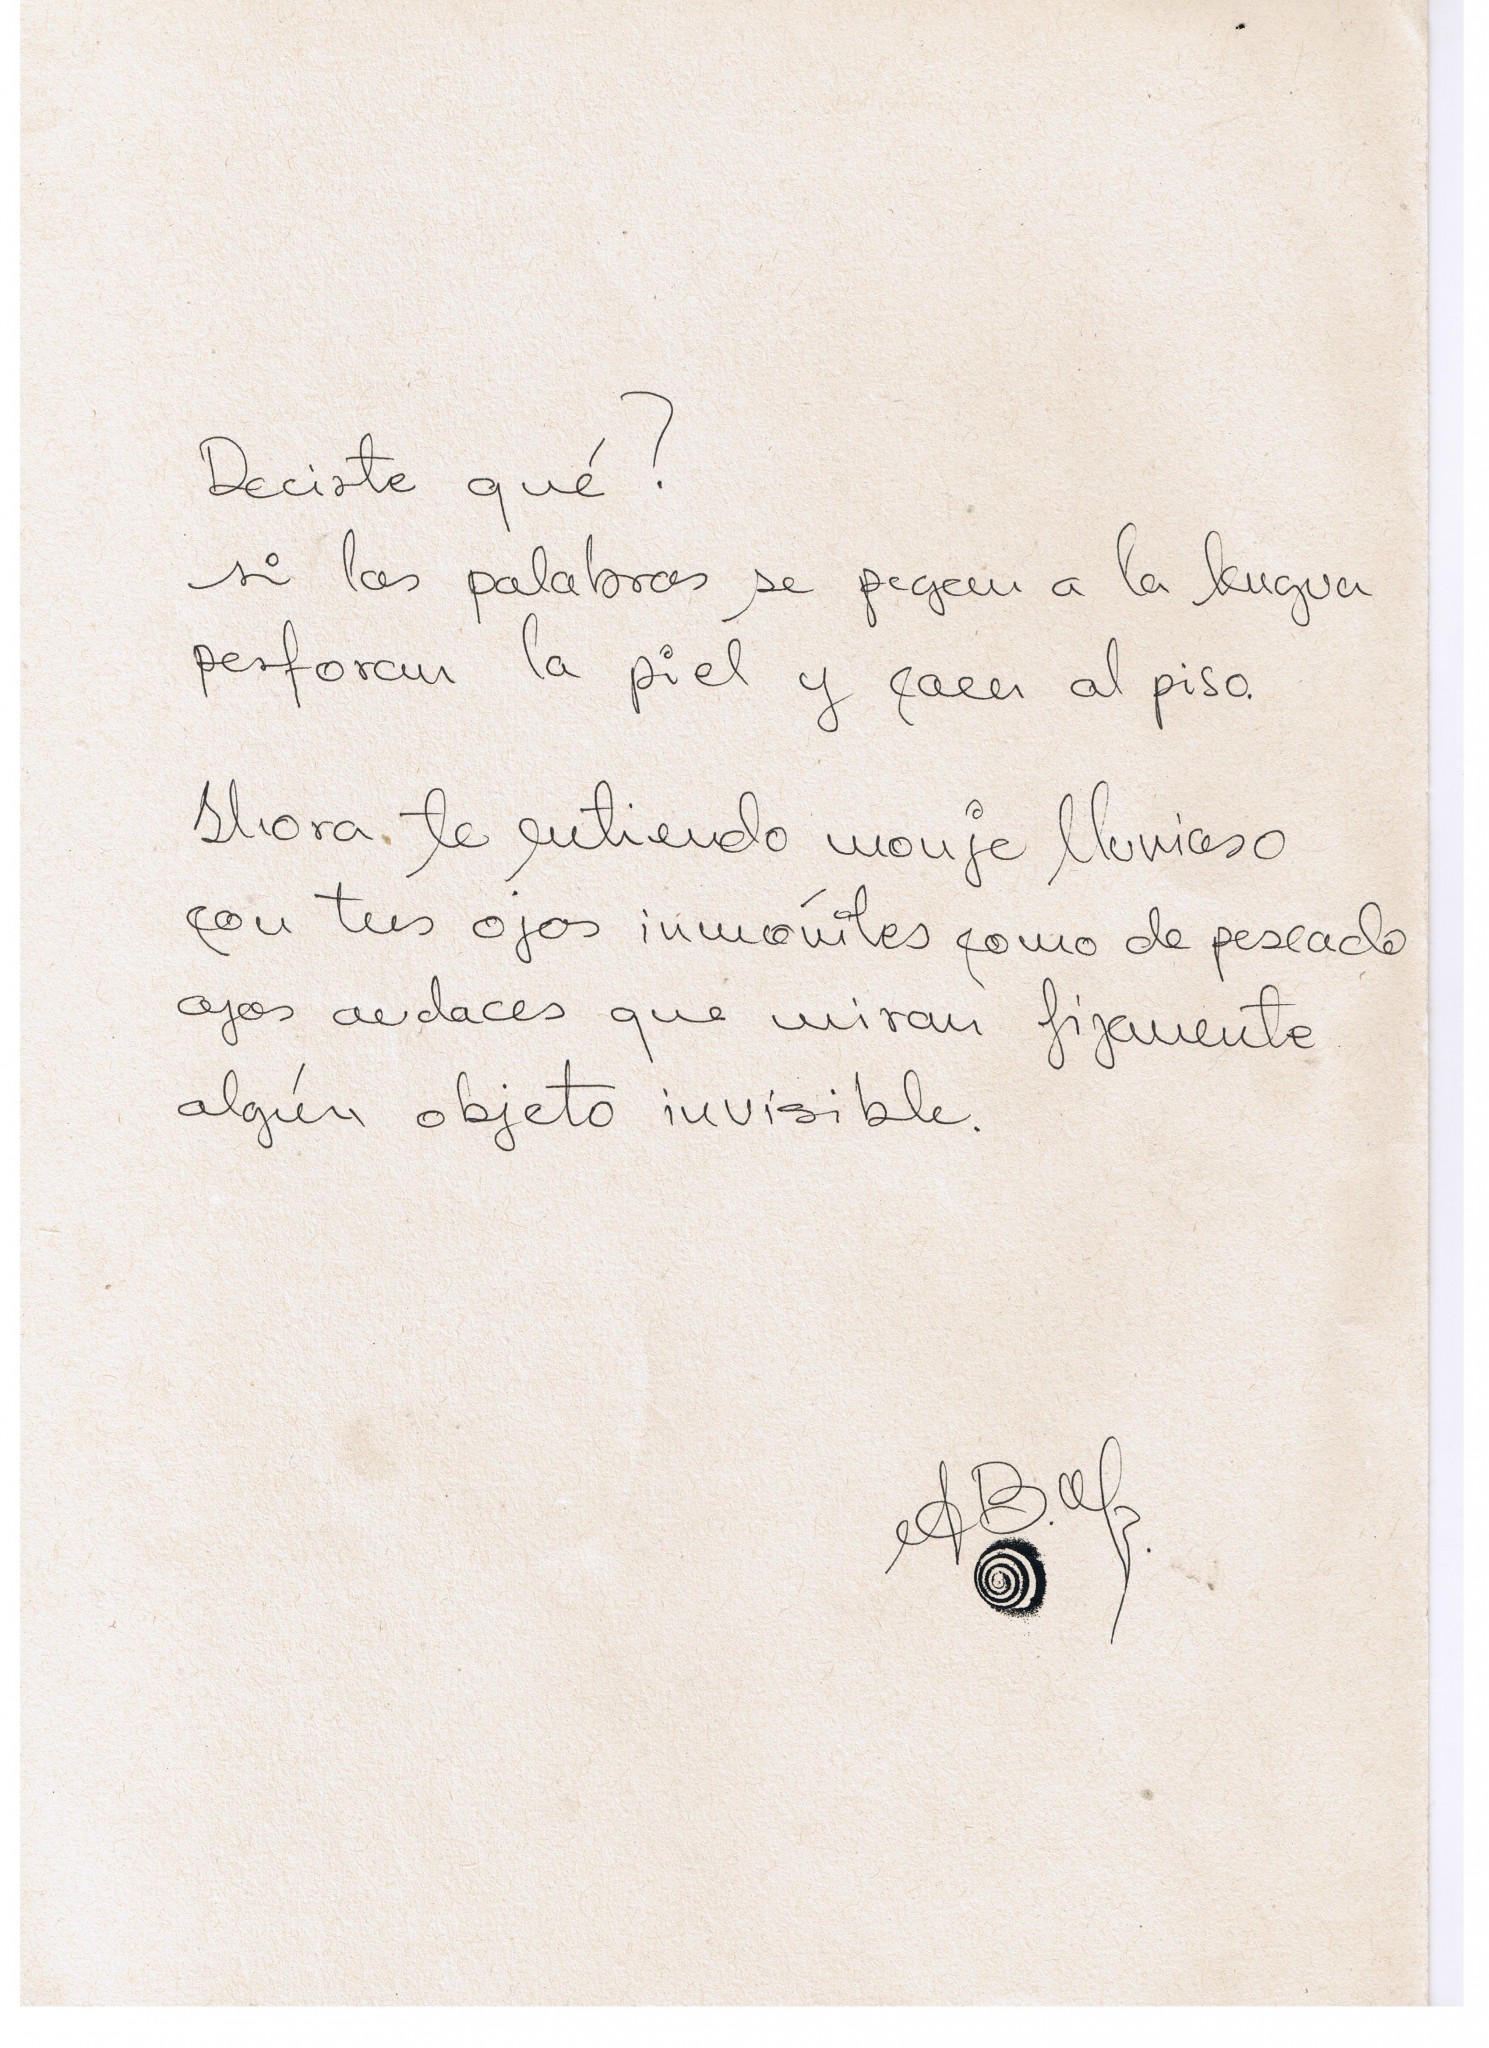 Deciste qué?
si las palabras se pegan a la lengua
perforan la piel y caen al piso.
Ahora te entiendo monje lluvioso
con tus ojos inmóviles como de pescado
ojos audaces que miran fijamente
algún objeto invisible.